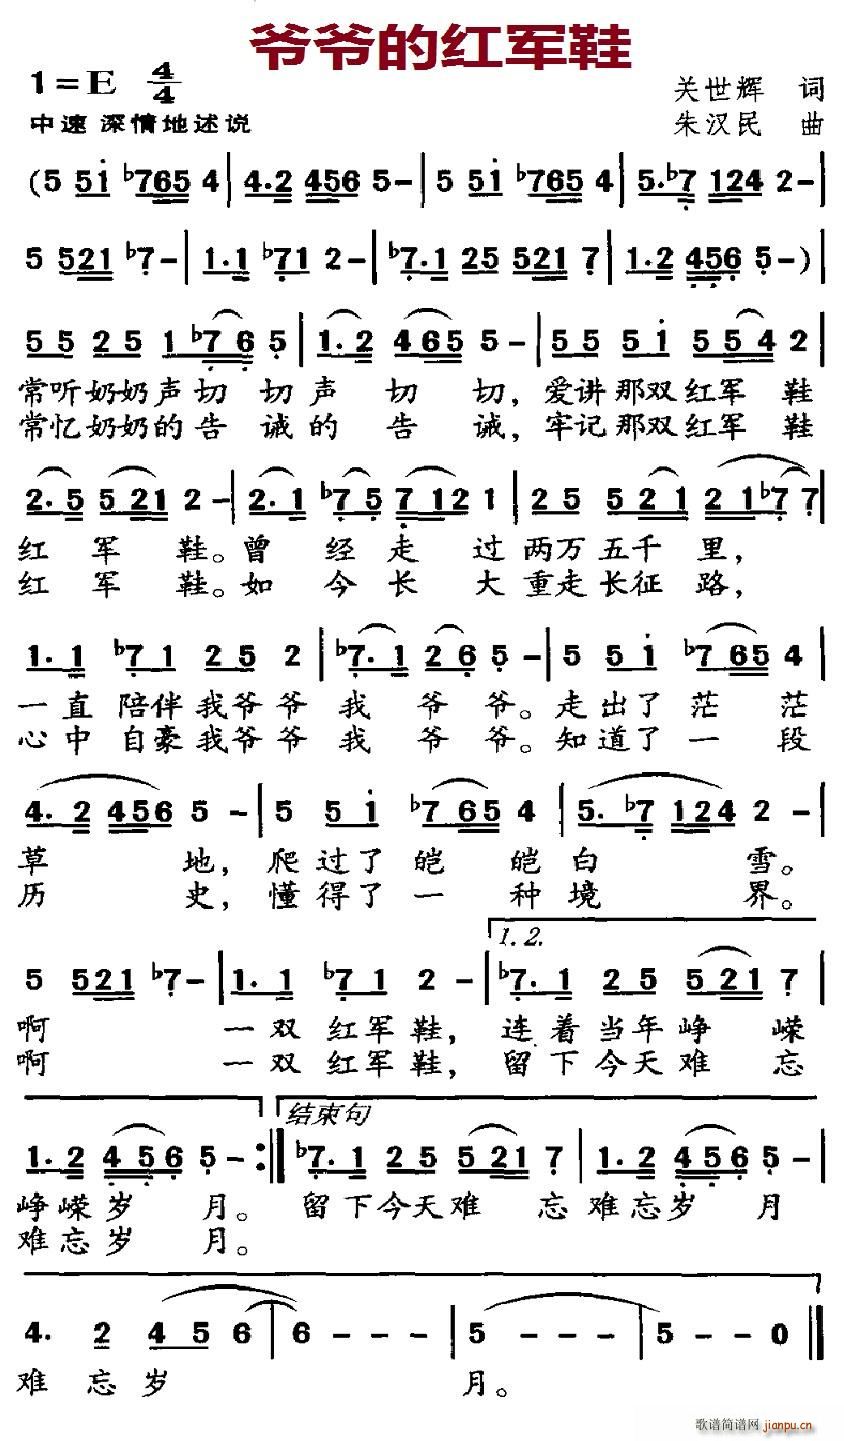 爷爷的红军鞋
1=E 4/4
关世辉 词
中速 深情地述说
朱汉民 曲
(5 51 b765 4 | 4.2 456 5- | 5 51 b765 4 | 5.b7 124 2- |
5 521 b7- | 1.1 b71 2- | b7.1 25 521 7 | 1.2 456 5-) |
55 25 1 b76 5 | 1.2 465 5- | 55 51 554 2 |
常听奶奶声切 切声 切 切，爱讲那双红军 鞋
常忆奶奶的告 诫的 告 诫，牢记那双红军 鞋
2.5 521 2- | 2.1 b75 7121 1 | 25 521 21b7 7 |
红 军 鞋。曾 经 走 过 两万 五千 里，
红 军 鞋。如 今 长 大 重走 长征 路，
1.1 b71 25 2 | b7.1 26 5- | 5 51 b765 4 |
一直 陪伴 我爷 爷 我 爷 爷。走 出了 茫 茫
心中 自豪 我爷 爷 我 爷 爷。知 道了 一 段
4.2 456 5- | 5 51 b765 4 | 5.b7 124 2- |
草 地，爬 过了 皑 皑 白 雪。
历 史，懂 得了 一 种 境 界。
1.2.
5 521 b7- | 1.1 b71 2- | b7.1 25 521 7 |
啊 一双 红军 鞋，连着 当年 峥 嵘
啊 一双 红军 鞋，留下 今天 难 忘
结束句
1.2 456 5- :‖ b7.1 25 521 7 | 1.2 456 5- |
峥嵘岁 月。留下今天难 忘 难忘岁 月
难忘岁 月。
4. 2 45 6 | 6 - - - | 5 - - - | 5 - - 0 ‖
难 忘 岁 月。
歌谱简谱网 jianpu.cn